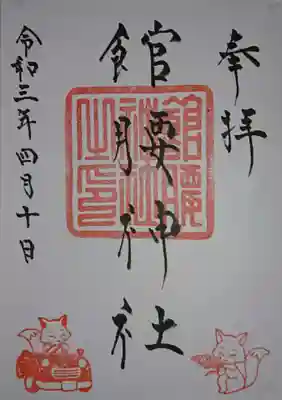 奉拝
館腰神社
令和三年四月十日
館腰
神社
之印